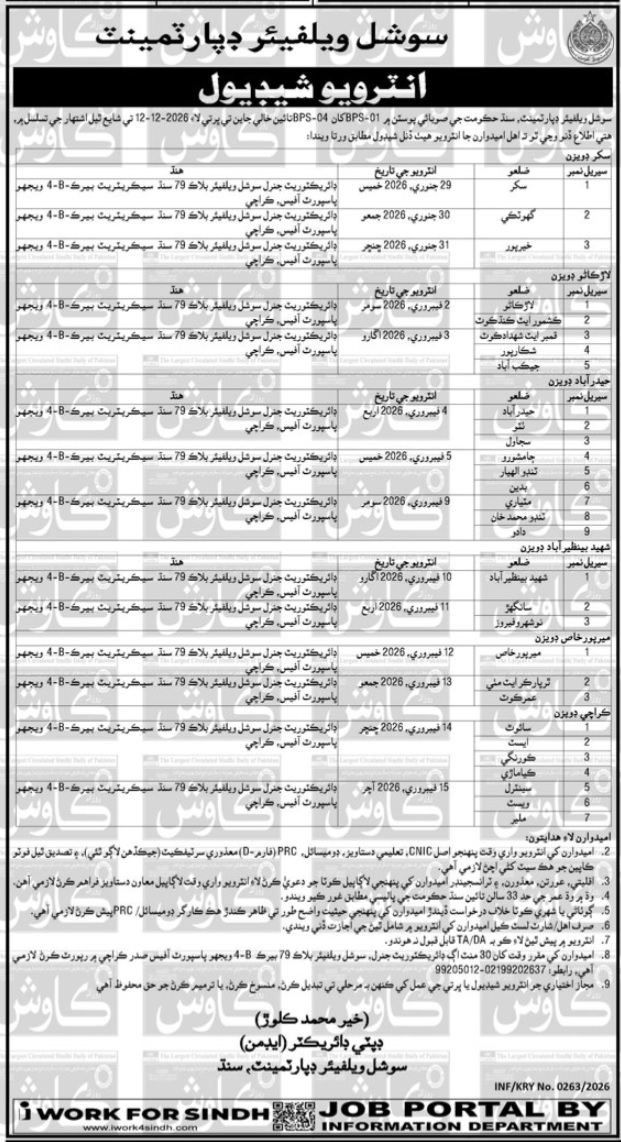 سوشل ويلفيئر ڊپارٽمينٽ
انٽرويو شيڊيول
سوشل ويلفيئر ڊپارٽمينٽ، سنڌ حڪومت جي صوبائي پوسٽن ۾ BPS-01 کان BPS-04 تائين خالي جاين تي ڀرتي لاءِ 2026-12-12 تي شايع ٿيل اشتهار جي تسلسل ۾،
هتي اطلاع ڏنو وڃي ٿو ته اهل اميدوارن جا انٽرويو هيٺ ڏنل شيڊول مطابق ورتا ويندا:
سکر ڊويزن
سيريل نمبر ضلعو انٽرويو جي تاريخ هنڌ
1 سکر 29 جنوري، 2026 خميس ڊائريڪٽوريٽ جنرل سوشل ويلفيئر بلاڪ 79 سنڌ سيڪريٽريٽ بيرڪ-4-B ويجهو
پاسپورٽ آفيس، ڪراچي
2 گهوٽڪي 30 جنوري، 2026 جمعو ڊائريڪٽوريٽ جنرل سوشل ويلفيئر بلاڪ 79 سنڌ سيڪريٽريٽ بيرڪ-4-B ويجهو
پاسپورٽ آفيس، ڪراچي
3 خيرپور 31 جنوري، 2026 ڇنڇر ڊائريڪٽوريٽ جنرل سوشل ويلفيئر بلاڪ 79 سنڌ سيڪريٽريٽ بيرڪ-4-B ويجهو
پاسپورٽ آفيس، ڪراچي
لاڙڪاڻو ڊويزن
سيريل نمبر ضلعو انٽرويو جي تاريخ هنڌ
1 لاڙڪاڻو 2 فيبروري، 2026 سومر ڊائريڪٽوريٽ جنرل سوشل ويلفيئر بلاڪ 79 سنڌ سيڪريٽريٽ بيرڪ-4-B ويجهو
2 ڪشمور ايٽ ڪنڌڪوٽ پاسپورٽ آفيس، ڪراچي
3 قمبر ايٽ شهدادڪوٽ 3 فيبروري، 2026 اڱارو ڊائريڪٽوريٽ جنرل سوشل ويلفيئر بلاڪ 79 سنڌ سيڪريٽريٽ بيرڪ-4-B ويجهو
4 شڪارپور پاسپورٽ آفيس، ڪراچي
5 جيڪب آباد
حيدرآباد ڊويزن
سيريل نمبر ضلعو انٽرويو جي تاريخ هنڌ
1 حيدرآباد 4 فيبروري، 2026 اربع ڊائريڪٽوريٽ جنرل سوشل ويلفيئر بلاڪ 79 سنڌ سيڪريٽريٽ بيرڪ-4-B ويجهو
2 ٺٽو پاسپورٽ آفيس، ڪراچي
3 سجاول
4 ڄامشورو 5 فيبروري، 2026 خميس ڊائريڪٽوريٽ جنرل سوشل ويلفيئر بلاڪ 79 سنڌ سيڪريٽريٽ بيرڪ-4-B ويجهو
5 ٽنڊو الهيار پاسپورٽ آفيس، ڪراچي
6 بدين
7 مٽياري 9 فيبروري، 2026 سومر ڊائريڪٽوريٽ جنرل سوشل ويلفيئر بلاڪ 79 سنڌ سيڪريٽريٽ بيرڪ-4-B ويجهو
8 ٽنڊو محمد خان پاسپورٽ آفيس، ڪراچي
9 دادو
شهيد بينظير آباد ڊويزن
سيريل نمبر ضلعو انٽرويو جي تاريخ هنڌ
1 شهيد بينظير آباد 10 فيبروري، 2026 اڱارو ڊائريڪٽوريٽ جنرل سوشل ويلفيئر بلاڪ 79 سنڌ سيڪريٽريٽ بيرڪ-4-B ويجهو
پاسپورٽ آفيس، ڪراچي
2 سانگهڙ 11 فيبروري، 2026 اربع ڊائريڪٽوريٽ جنرل سوشل ويلفيئر بلاڪ 79 سنڌ سيڪريٽريٽ بيرڪ-4-B ويجهو
3 نوشهروفيروز پاسپورٽ آفيس، ڪراچي
ميرپورخاص ڊويزن
1 ميرپورخاص 12 فيبروري، 2026 خميس ڊائريڪٽوريٽ جنرل سوشل ويلفيئر بلاڪ 79 سنڌ سيڪريٽريٽ بيرڪ-4-B ويجهو
پاسپورٽ آفيس، ڪراچي
2 ٿرپارڪر ايٽ مٺي 13 فيبروري، 2026 جمعو ڊائريڪٽوريٽ جنرل سوشل ويلفيئر بلاڪ 79 سنڌ سيڪريٽريٽ بيرڪ-4-B ويجهو
3 عمرڪوٽ پاسپورٽ آفيس، ڪراچي
ڪراچي ڊويزن
1 سائوٿ 14 فيبروري، 2026 ڇنڇر ڊائريڪٽوريٽ جنرل سوشل ويلفيئر بلاڪ 79 سنڌ سيڪريٽريٽ بيرڪ-4-B ويجهو
2 ايسٽ پاسپورٽ آفيس، ڪراچي
3 ڪورنگي
4 ڪيماڙي
5 سينٽرل 15 فيبروري، 2026 آچر ڊائريڪٽوريٽ جنرل سوشل ويلفيئر بلاڪ 79 سنڌ سيڪريٽريٽ بيرڪ-4-B ويجهو
6 ويسٽ پاسپورٽ آفيس، ڪراچي
7 ملير
اميدوارن لاءِ هدايتون:
2. اميدوارن کي انٽرويو واري وقت پنهنجو اصل CNIC، تعليمي دستاويز، ڊوميسائل، PRC (فارم-D) معذوري سرٽيفڪيٽ (جيڪڏهن لاڳو ٿئي)، ۽ تصديق ٿيل فوٽو
ڪاپين جو هڪ سيٽ کڻي اچڻ لازمي آهي.
3. اقليتي، عورتن، معذورن، ۽ ٽرانسجينڊر اميدوارن کي پنهنجي لاڳاپيل ڪوٽا جو دعويٰ ڪرڻ لاءِ انٽرويو واري وقت لاڳاپيل معاون دستاويز فراهم ڪرڻ لازمي آهن.
4. وڌ ۾ وڌ عمر جي حد 33 سالن تائين سنڌ حڪومت جي پاليسي مطابق غور ڪيو ويندو.
5. ڳوٺاڻي يا شهري ڪوٽا خلاف درخواست ڏيندڙ اميدوارن کي پنهنجي حيثيت واضح طور تي ظاهر ڪندڙ هڪ ڪارگر ڊوميسائل/PRC پيش ڪرڻ لازمي آهي.
6. صرف اهل/شارٽ لسٽ ڪيل اميدوارن کي انٽرويو ۾ شامل ٿيڻ جي اجازت ڏني ويندي.
7. انٽرويو ۾ پيش ٿيڻ لاءِ ڪو به TA/DA قابل قبول نه هوندو.
8. اميدوارن کي مقرر وقت کان 30 منٽ اڳ ڊائريڪٽوريٽ جنرل، سوشل ويلفيئر بلاڪ 79 بيرڪ 4-B ويجهو پاسپورٽ آفيس صدر ڪراچي ۾ رپورٽ ڪرڻ لازمي
آهي، رابطو: 02199202637-99205012
9. مجاز اختياري جو انٽرويو شيڊيول يا ڀرتي جي عمل کي ڪنهن به مرحلي تي تبديل ڪرڻ، منسوخ ڪرڻ، يا ترميم ڪرڻ جو حق محفوظ آهي
(خير محمد ڪلوڙ)
ڊپٽي ڊائريڪٽر (ايڊمن)
سوشل ويلفيئر ڊپارٽمينٽ، سنڌ
INF/KRY No. 0263/2026
i WORK FOR SINDH
www.iwork4sindh.com
JOB PORTAL BY
INFORMATION DEPARTMENT